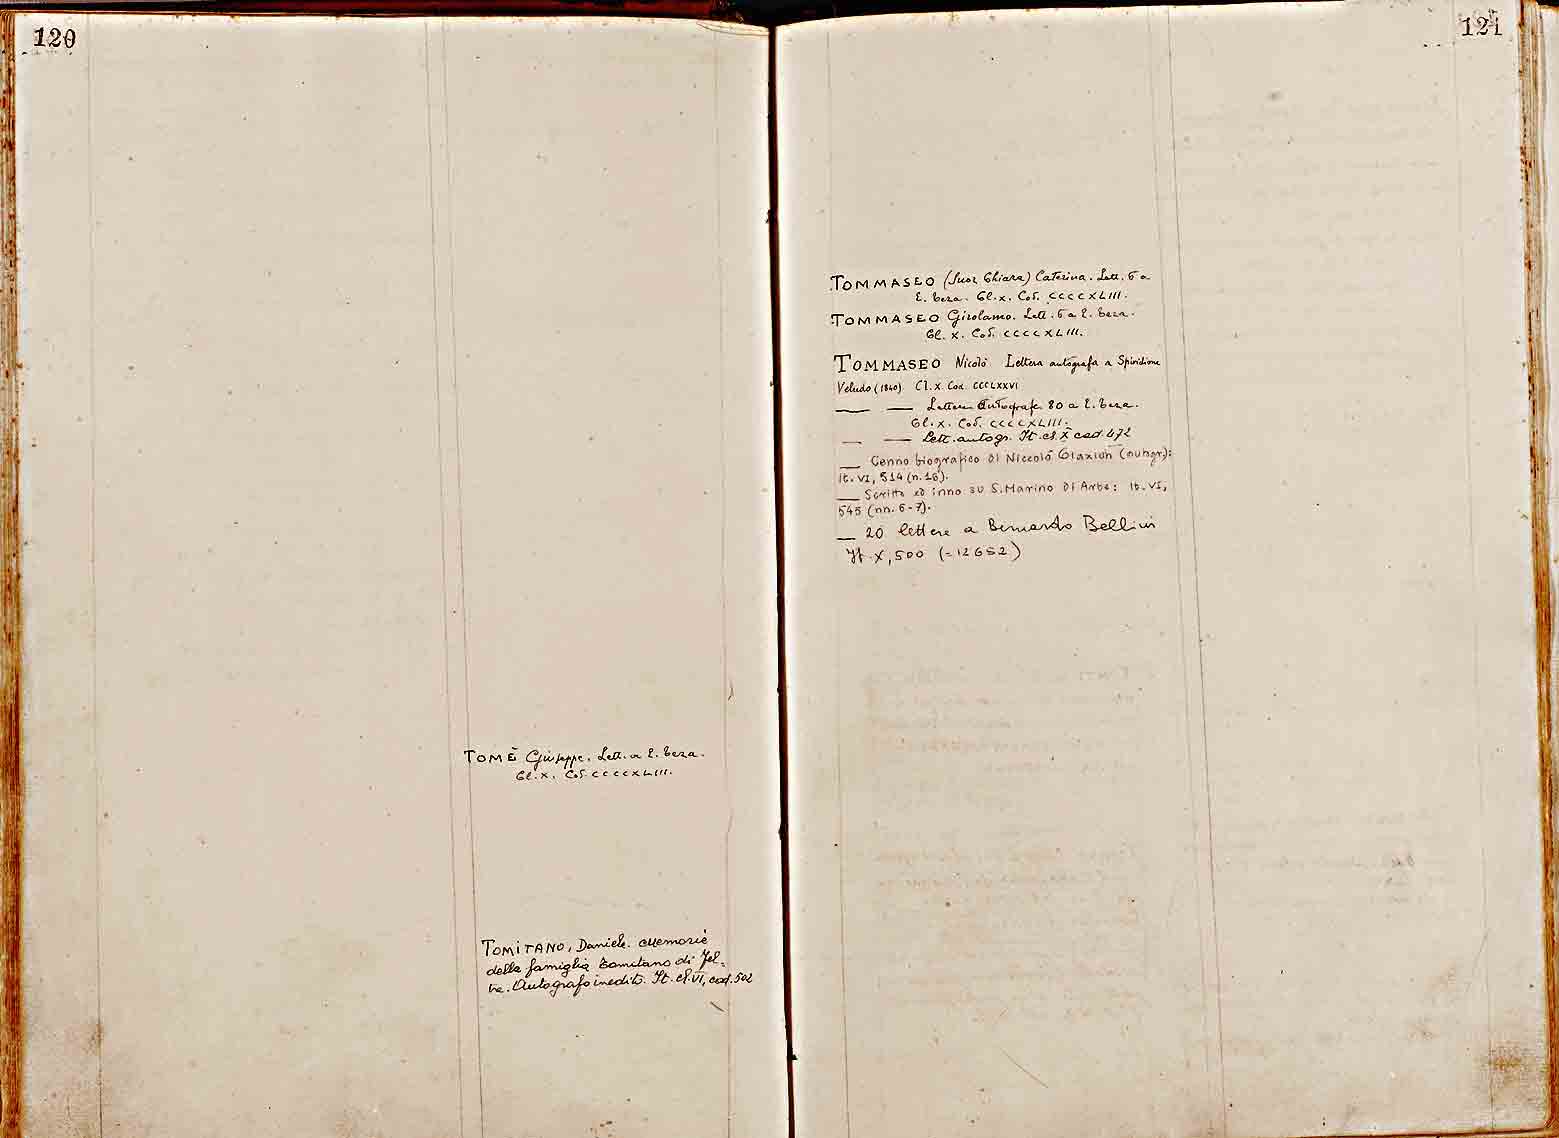 120
TOMÈ Giuseppe. Lett. a E. Teza.
Cl. X. Cod. CCCCXLIII.
TOMITANO, Daniele. Memorie
della famiglia Tomitano di Fel-
tre. Autografo inedito. It. cl. VI, cod. 502
121
TOMMASEO (Suor Chiara) Caterina. Lett. 6 a
E. Teza. Cl. X. Cod. CCCCXLIII.
TOMMASEO Girolamo. Lett. 6 a E. Teza.
Cl. X. Cod. CCCCXLIII.
TOMMASEO Nicolò Lettera autografa a Spiridione
Veludo (1840) Cl. X. Cod. CCCLXXVI
— — Lettere Autografe 80 a E. Teza.
Cl. X. Cod. CCCCXLIII.
— — Lett. autogr. It. cl. X cod. 472
— Cenno biografico di Niccolò (autogr.):
It. VI, 514 (n. 16).
— Scritto ed inno su S. Marino di Arbe: It. VI,
545 (nn. 6-7).
— 20 lettere a Bernardo Bellini
It. X, 500 (=12652)